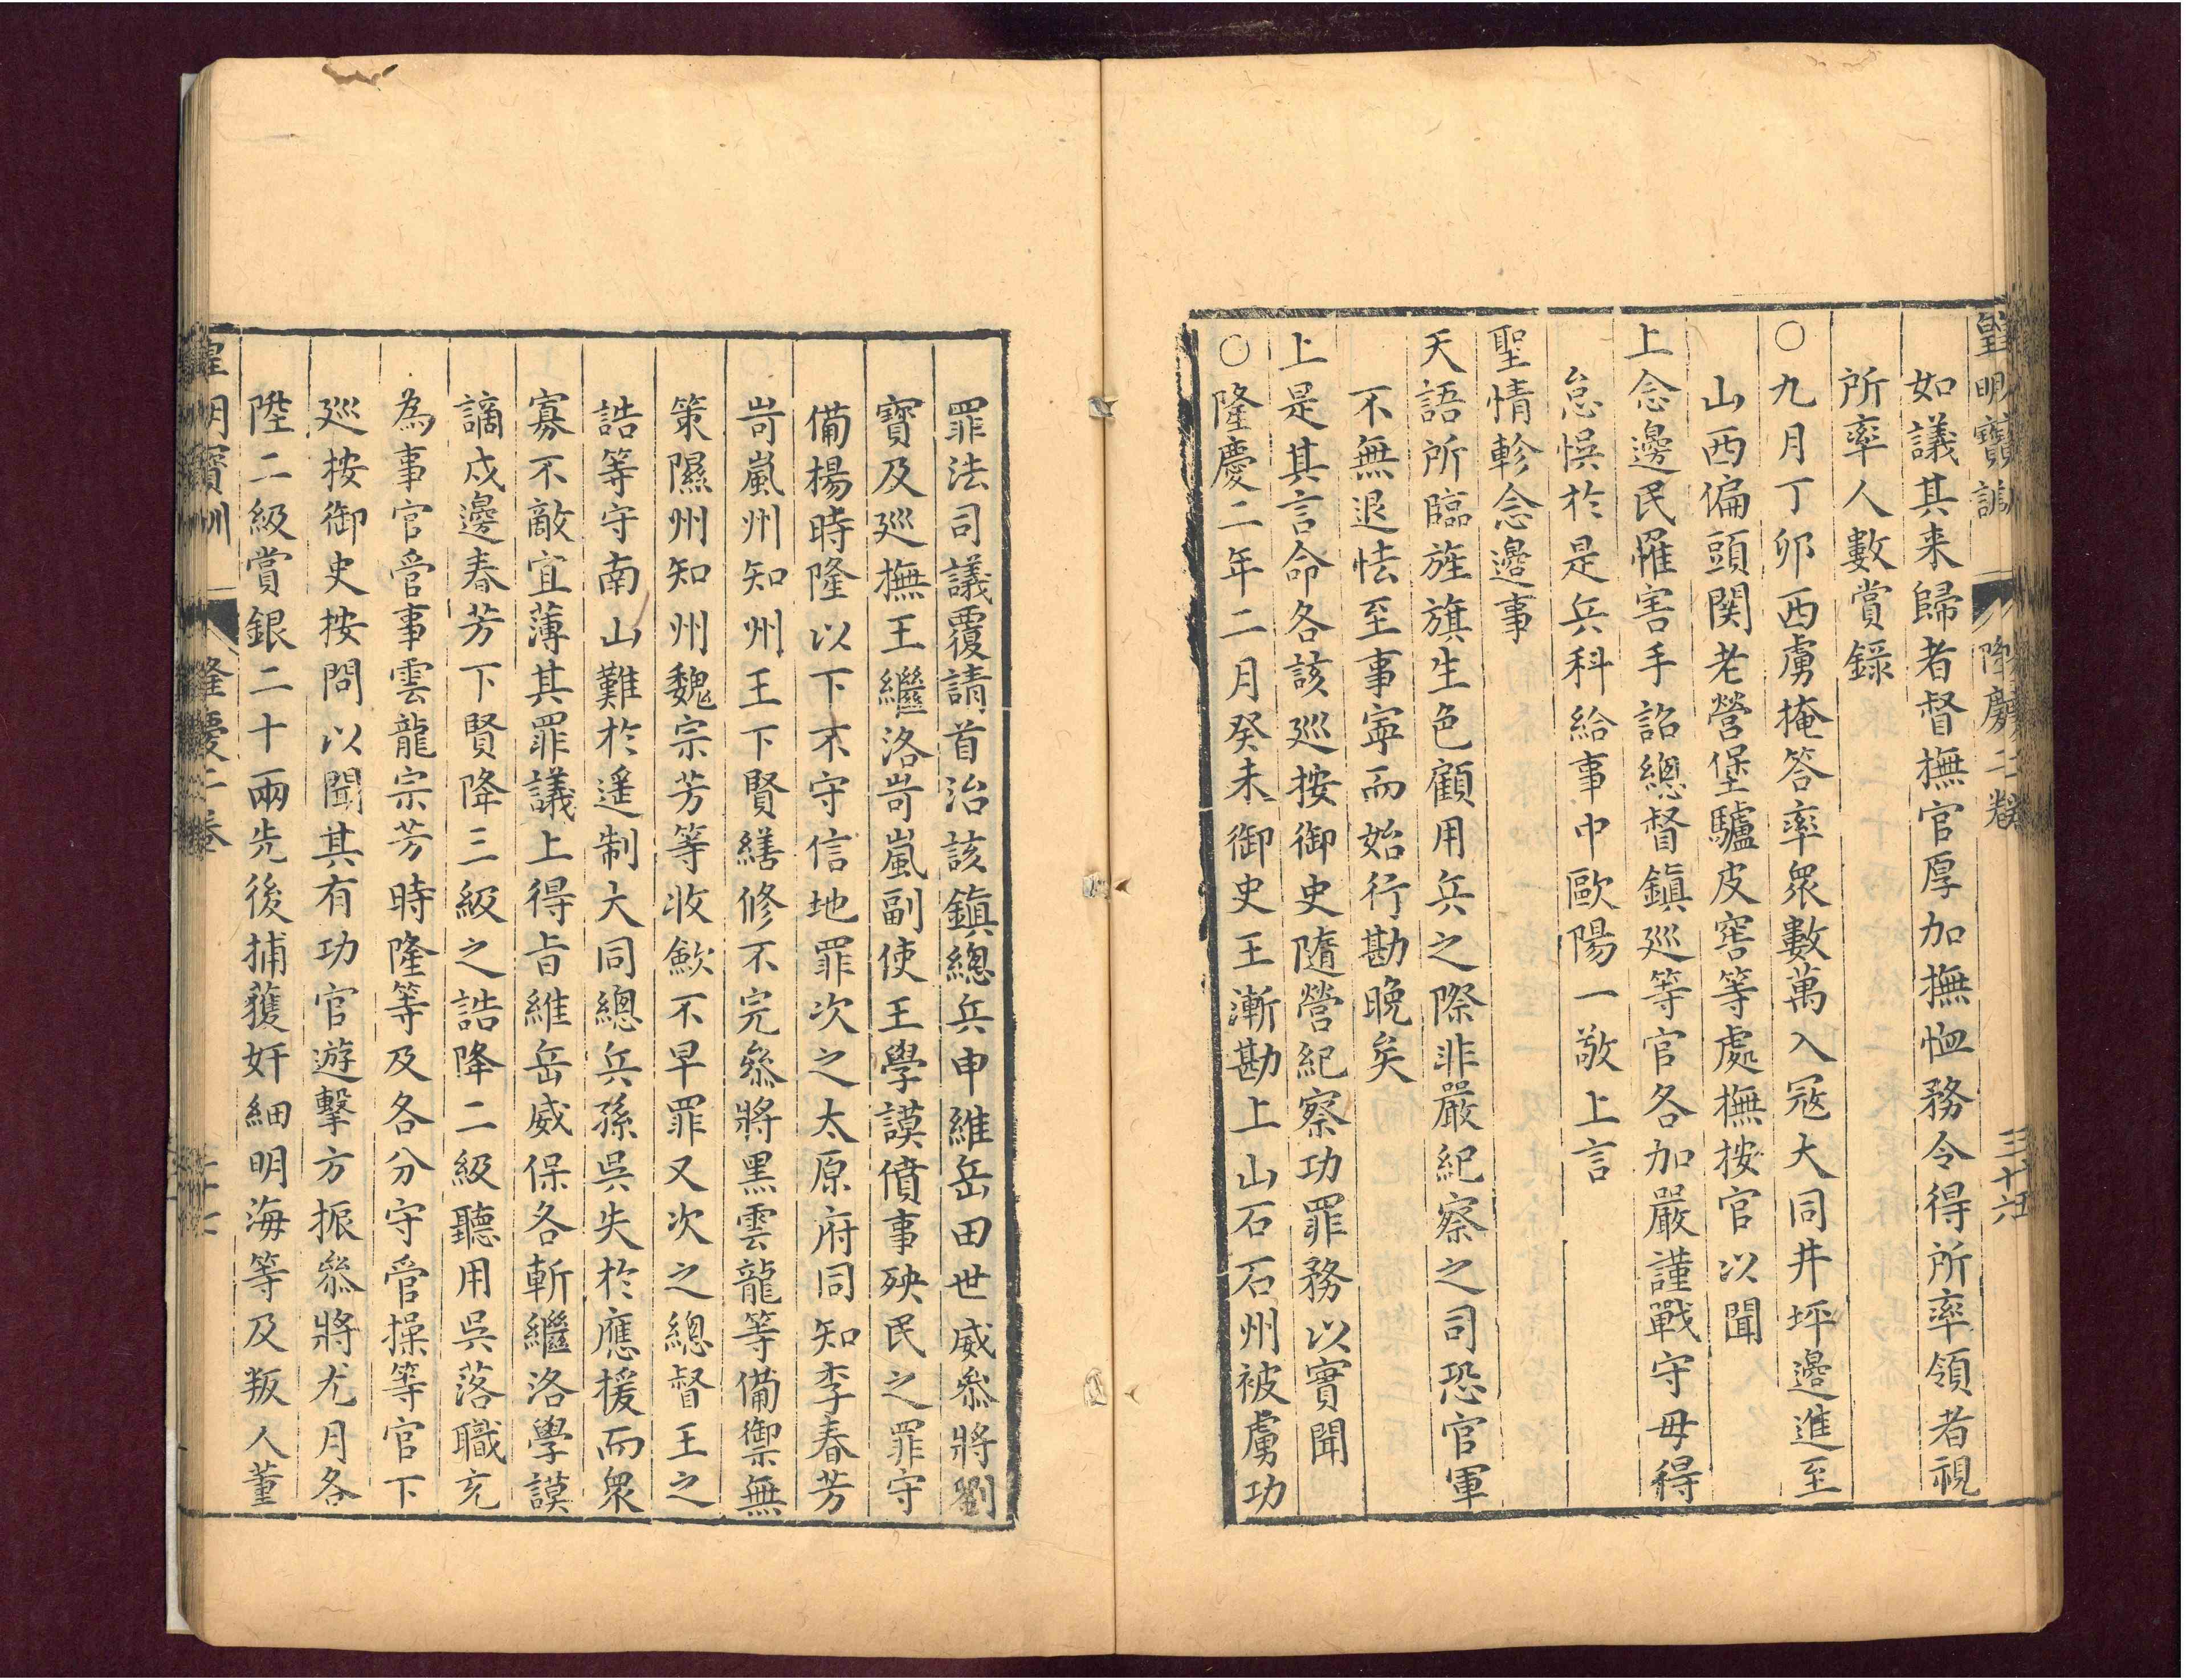 皇明寶訓 隆慶二卷 三十六
如議其来歸者督撫官厚加撫恤務令得所率領者視
所率人數賞錄
○九月丁卯西虜掩答率衆數萬入寇大同井坪邊進至
山西偏頭関老營堡驢皮窖等處撫按官以聞
上念邊民罹害手詔總督鎮廵等官各加嚴謹戰守毋得
怠悞於是兵科給事中歐陽一敬上言
聖情軫念邊事
天語所臨旌旗生色顧用兵之際非嚴紀察之司恐官軍
不無退怯至事寧而始行勘晚矣
上是其言命各該廵按御史隨營紀察功罪務以實聞
○隆慶二年二月癸未御史王漸勘上山石石州被虜功
罪法司議覆請首治該鎮總兵申維岳田世威叅將劉
寶及廵撫王繼洛岢嵐副使王學謨僨事殃民之罪守
備楊時隆以下不守信地罪次之太原府同知李春芳
岢嵐州知州王下賢繕修不完叅將黑雲龍等備禦無
策隰州知州魏宗芳等收歛不早罪又次之總督王之
誥等守南山難於遥制大同總兵孫吳失於應援而衆
寡不敵宜薄其罪議上得旨維岳威保各斬繼洛學謨
謫戍邊春芳下賢降三級之誥降二級聽用吳落職充
為事官管事雲龍宗芳時隆等及各分守管操等官下
廵按御史按問以聞其有功官遊擊方振叅將尤月各
陞二級賞銀二十兩先後捕獲奸細明海等及叛人董
皇明寶訓 隆慶二卷